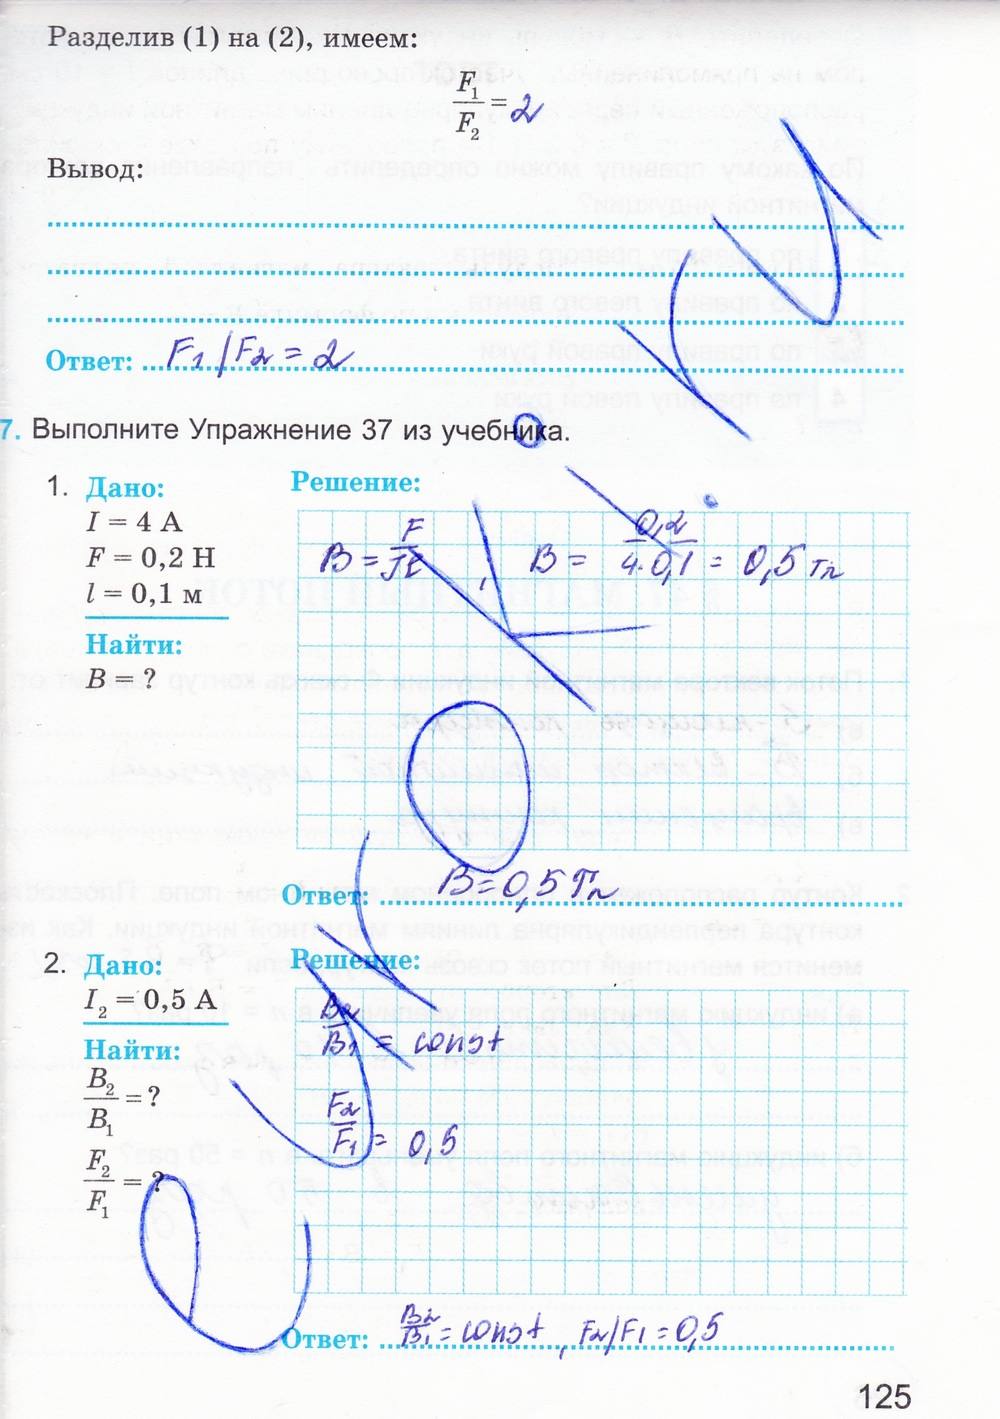 Разделив (1) на (2), имеем:
F₁/F₂ = 2
Вывод:
Ответ: F₁/F₂ = 2
7. Выполните Упражнение 37 из учебника.
1. Дано:
I = 4 А
F = 0,2 Н
l = 0,1 м
Найти:
B = ?
Решение:
B = F/Iℓ, B = 0,2/4·0,1 = 0,5 Тл
Ответ: B = 0,5 Тл
2. Дано:
I₂ = 0,5 А
Найти:
B₂/B₁ = ?
F₂/F₁ = ?
Решение:
B₂/B₁ = const
F₂/F₁ = 0,5
Ответ: B₂/B₁ = const, F₂/F₁ = 0,5
125